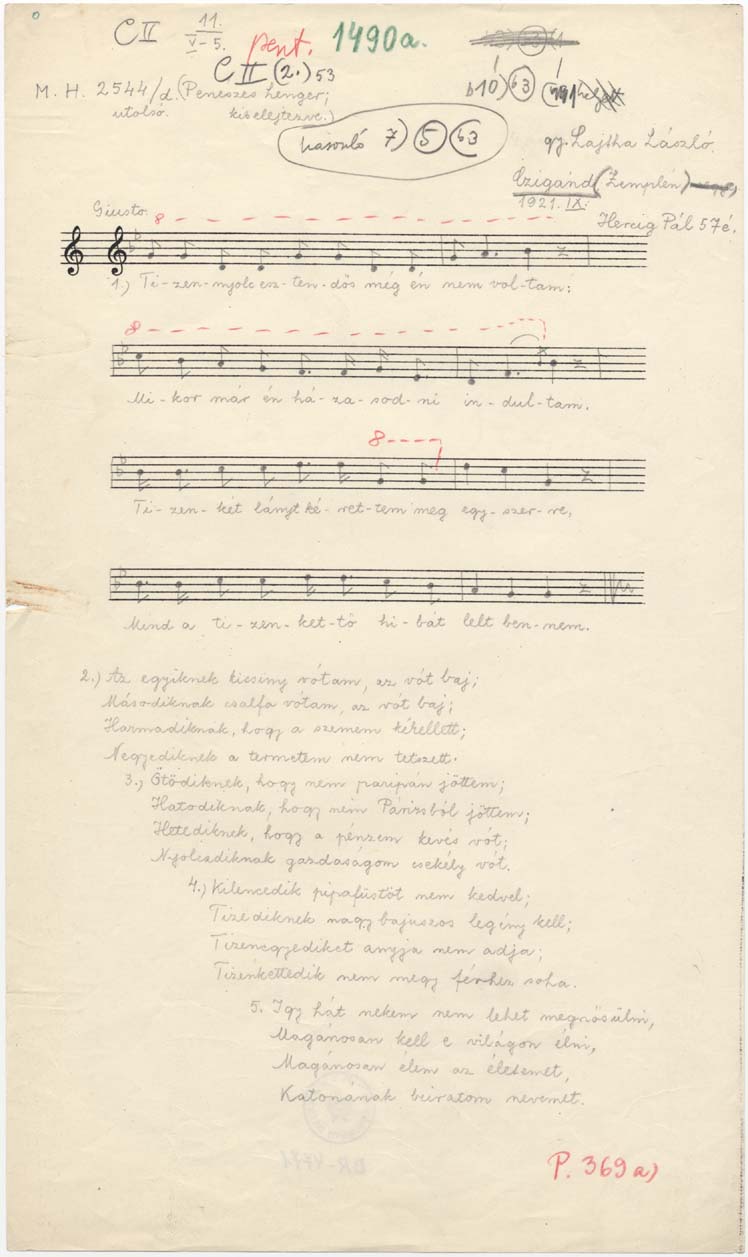 C II 11.
V-5.
pent. 1490a.
C II (2.) 53
M. H. 2544/d. (Penészes henger;
utolsó. kiselejtezve.)
b10) b3
hasonló 7) 5 (b3
gy. Lajtha László.
Czigánd (Zemplén)
1921. IX.
Hercig Pál 57é.
Giusto.
8
1.) Ti-zen-nyolc esz-ten-dős még én nem vol-tam:
8
Mi-kor már én há-za-sod-ni in-dul-tam.
8
Ti-zen-két lányt ké-ret-tem meg egy-szer-re,
Mind a ti-zen-ket-tő hi-bát lelt ben-nem.
2.) Az egyiknek kicsiny vótam, az vót baj;
Másodiknak csalfa vótam, az vót baj;
Harmadiknak, hogy a szemem kékellett;
Negyediknek a termetem nem tetszett.
3.) Ötödiknek, hogy nem paripán jöttem;
Hatodiknak, hogy nem Párizsból jöttem;
Hetediknek, hogy a pénzem kevés vót;
Nyolcadiknak gazdaságom csekély vót.
4.) Kilencedik pipafüstöt nem kedvel;
Tizediknek nagy bajuszos legény kell;
Tizenegyediket anyja nem adja;
Tizenkettedik nem megy férhez soha.
5. Igy hát nekem nem lehet megnősülni,
Magánosan kell e világon élni,
Magánosan élem az életemet,
Katonának beiratom nevemet.
P. 369a)